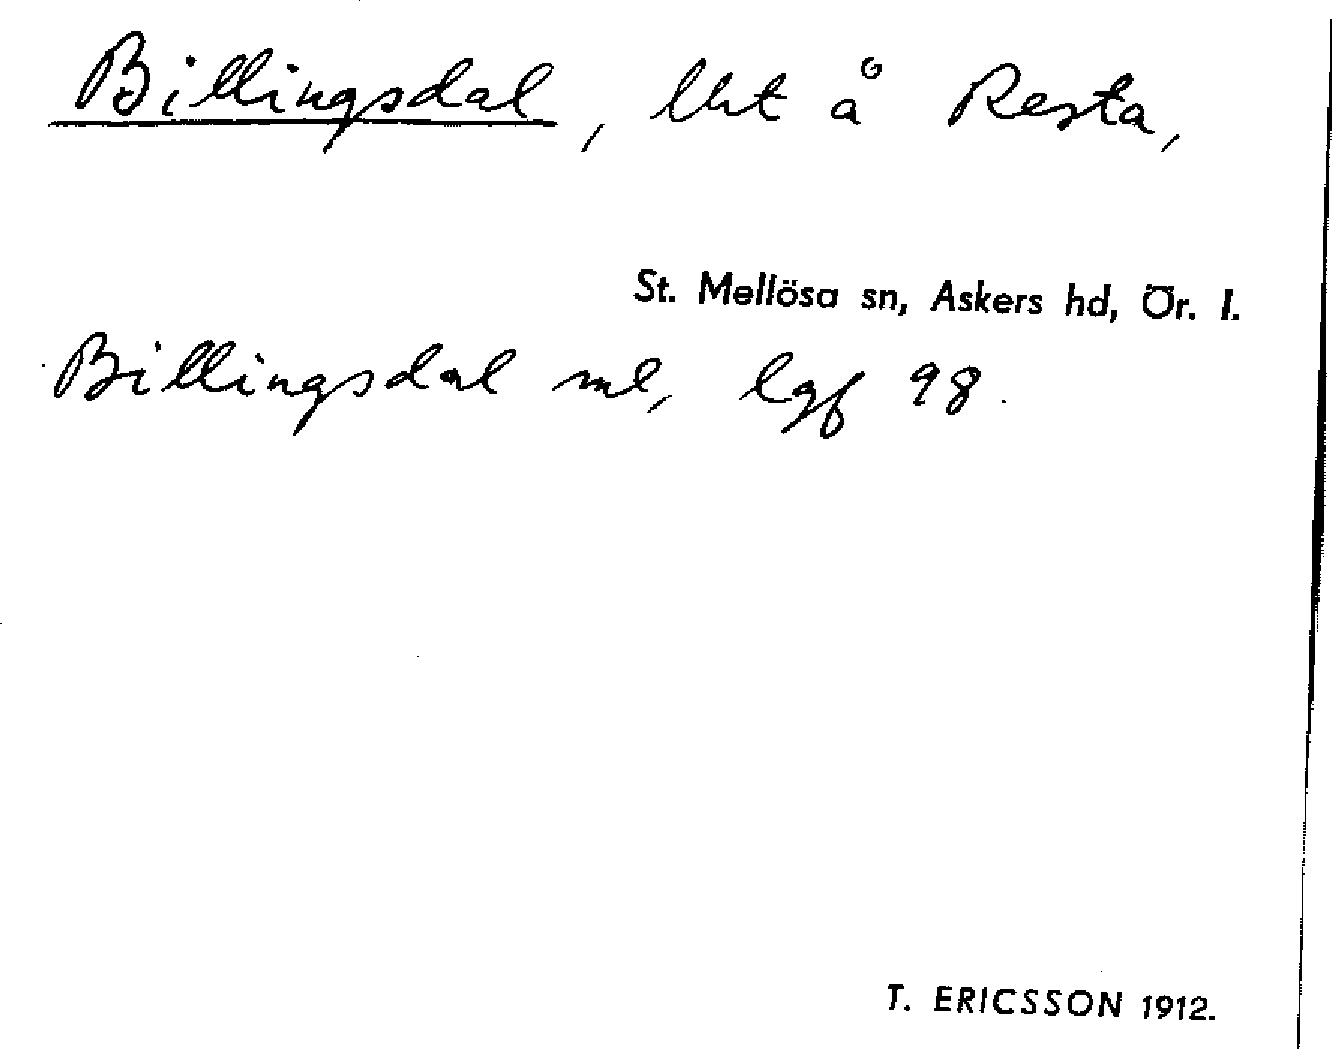 Billingsdal, lht å Resta,
St. Mellösa sn, Askers hd, Ör. l.
Billingsdal ml, lgf 98.
T. ERICSSON 1912.